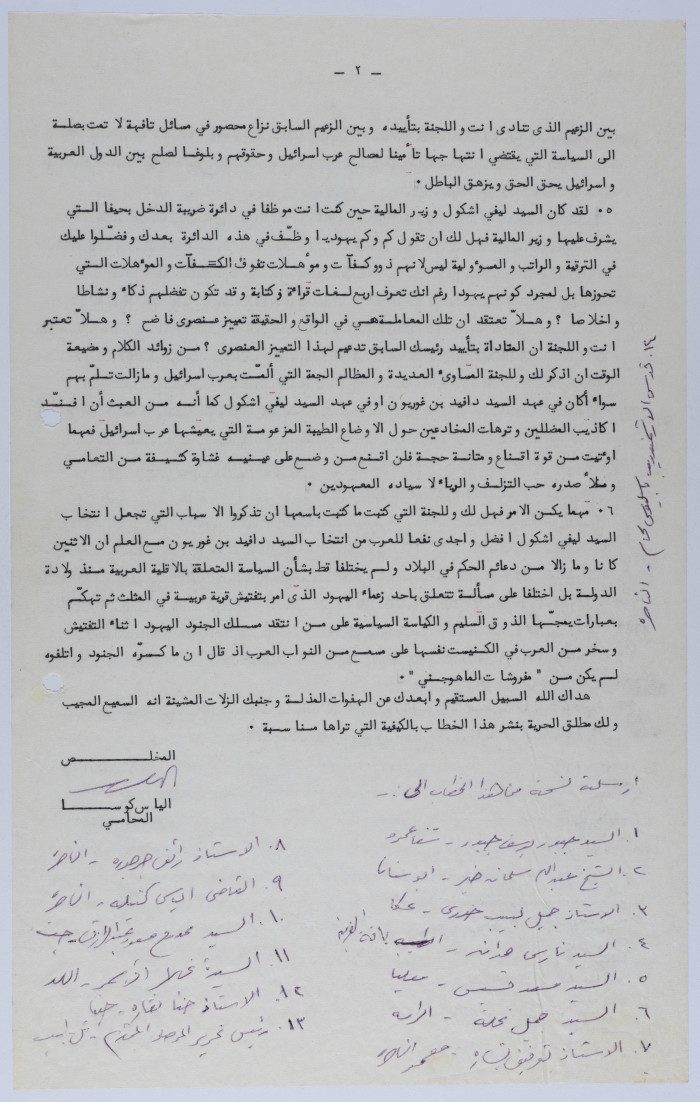 - ٢ -
بين الزعيم الذي تنادي انت واللجنة بتأييده وبين الزعيم السابق نزاع محصور في مسائل تافهة لا تمت بصلة
الى السياسة التي يقتضي انتهاجها تأمينا لصالح عرب اسرائيل وحقوقهم وبلوغا لصلح بين الدول العربية
واسرائيل يحق الحق ويزهق الباطل ٠
٥٠ لقد كان السيد ليفي اشكول وزير المالية حين كنت انت موظفا في دائرة ضريبة الدخل بحيفا التي
يشرف عليها وزير المالية فهل لك ان تقول كم وكم يهوديا وظّف في هذه الدائرة بعدك وفضّلوا عليك
في الترقية والراتب والمسؤولية ليس لانهم ذوو كفآت ومؤهلات تفوق الكفآت والمؤهلات التي
تحوزها بل لمجرد كونهم يهودا رغم انك تعرف اربع لغات قراءة وكتابة وقد تكون تفضلهم ذكاء ونشاطا
واخلاصا ؟ وهلاّ تعتقد ان تلك المعاملة هي في الواقع والحقيقة تمييز عنصري فاضح ؟ وهلاّ تعتبر
انت واللجنة ان المناداة بتأييد رئيسك السابق تدعيم لهذا التمييز العنصري ؟ من زوائد الكلام ومضيعة
الوقت ان اذكر لك وللجنة المساوئ العديدة والمظالم الجمة التي ألمّت بعرب اسرائيل وما زالت تلمّ بهم
سواء أكان في عهد السيد دافيد بن غوريون او في عهد السيد ليفي اشكول كما أنه من العبث أن افنّد
اكاذيب المضللين وترهات المخادعين حول الاوضاع الطيبة المزعومة التي يعيشها عرب اسرائيل فمهما
اوتيت من قوة اقناع ومتانة حجة فلن اقنع من وضع على عينيه غشاوة كثيفة من التعامي
وملأ صدره حب التزلف والرياء لاسياده المعبودين ٠
٠٦ مهما يكن الامر فهل لك وللجنة التي كتبت ما كتبت باسمها ان تذكروا الاسباب التي تجعل انتخاب
السيد ليفي اشكول افضل واجدى نفعا للعرب من انتخاب السيد دافيد بن غوريون مع العلم ان الاثنين
كانا وما زالا من دعائم الحكم في البلاد ولم يختلفا قط بشأن السياسة المتعلقة بالاقلية العربية منذ ولادة
الدولة بل اختلفا على مسألة تتعلق باحد زعماء اليهود الذي امر بتفتيش قرية عربية في المثلث ثم تهكّم
بعبارات يمجّها الذوق السليم والكياسة السياسية على من انتقد مسلك الجنود اليهود اثناء التفتيش
وسخر من العرب في الكنيست نفسها على مسمع من النواب العرب اذ قال ان ما كسّره الجنود واتلفوه
لم يكن من " مفروشات الماهوجني "٠
هداك الله السبيل المستقيم وابعدك عن الهفوات المذلة وجنبك الزلات المشينة انه السميع المجيب
ولك مطلق الحرية بنشر هذا الخطاب بالكيفية التي تراها مناسبة ٠
المخلص
الياس كوسا
المحامي
ارسلت نسخة من هذا الخطاب الى :-
١. السيد جبور يوسف جبور - شفاعمرو
٢. الشيخ عبدالله سلمان خير - ابوسنان
٣. الاستاذ جميل لبيب خوري - عكا
٤. السيد فارس حمدان - باقة الغربية
٥. السيد مسعد قسيس - معليا
٦. السيد جميل نخلة - الرامة
٧. الاستاذ توفيق
٨. الاستاذ رائف جرجوره - الناصرة
٩. القاضي الياس كتيله - الناصرة
١٠. السيد ممدوح
١١. السيدة - اللد
١٢. الاستاذ حنا نقاره - حيفا
١٣. رئيس تحرير المرصاد - تل ابيب
- الناصرة